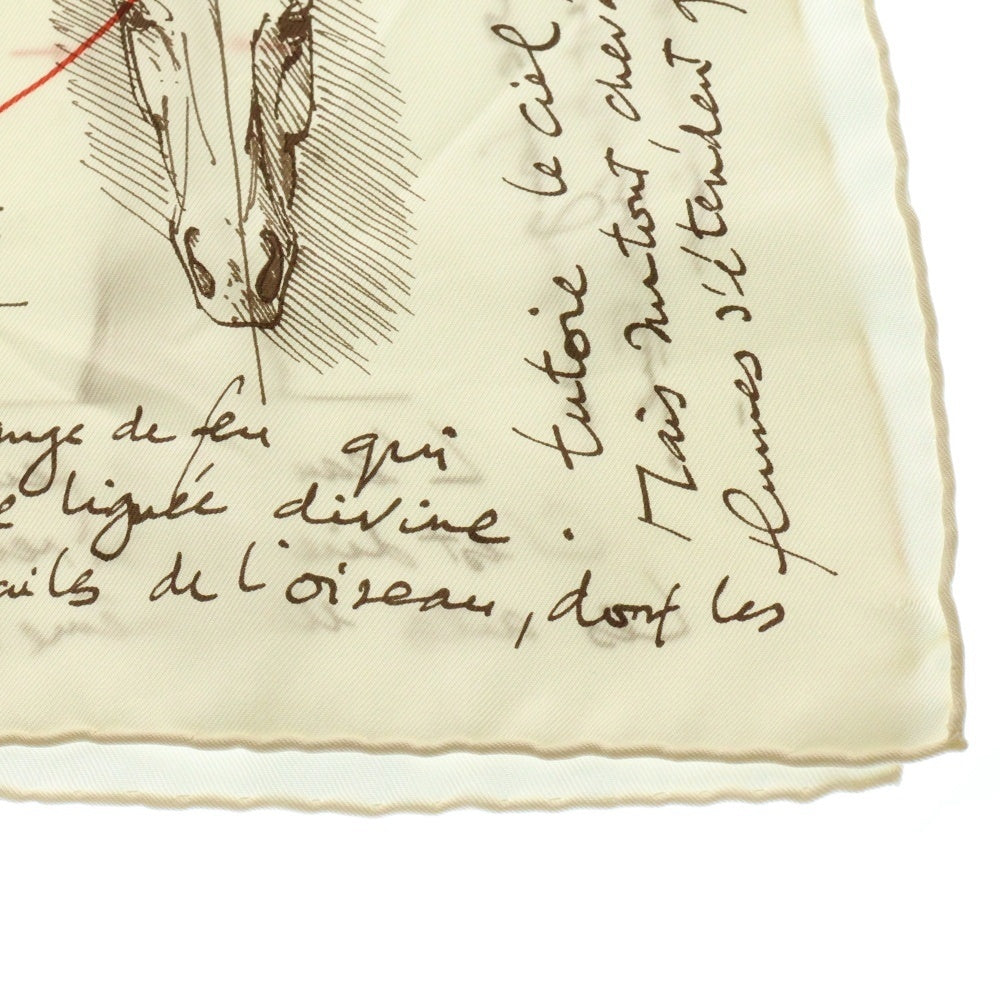 de feu qui
lignée divine .
ailes de l'oiseau, dont les
tutoie le ciel
Mais surtout
plumes s'étendent